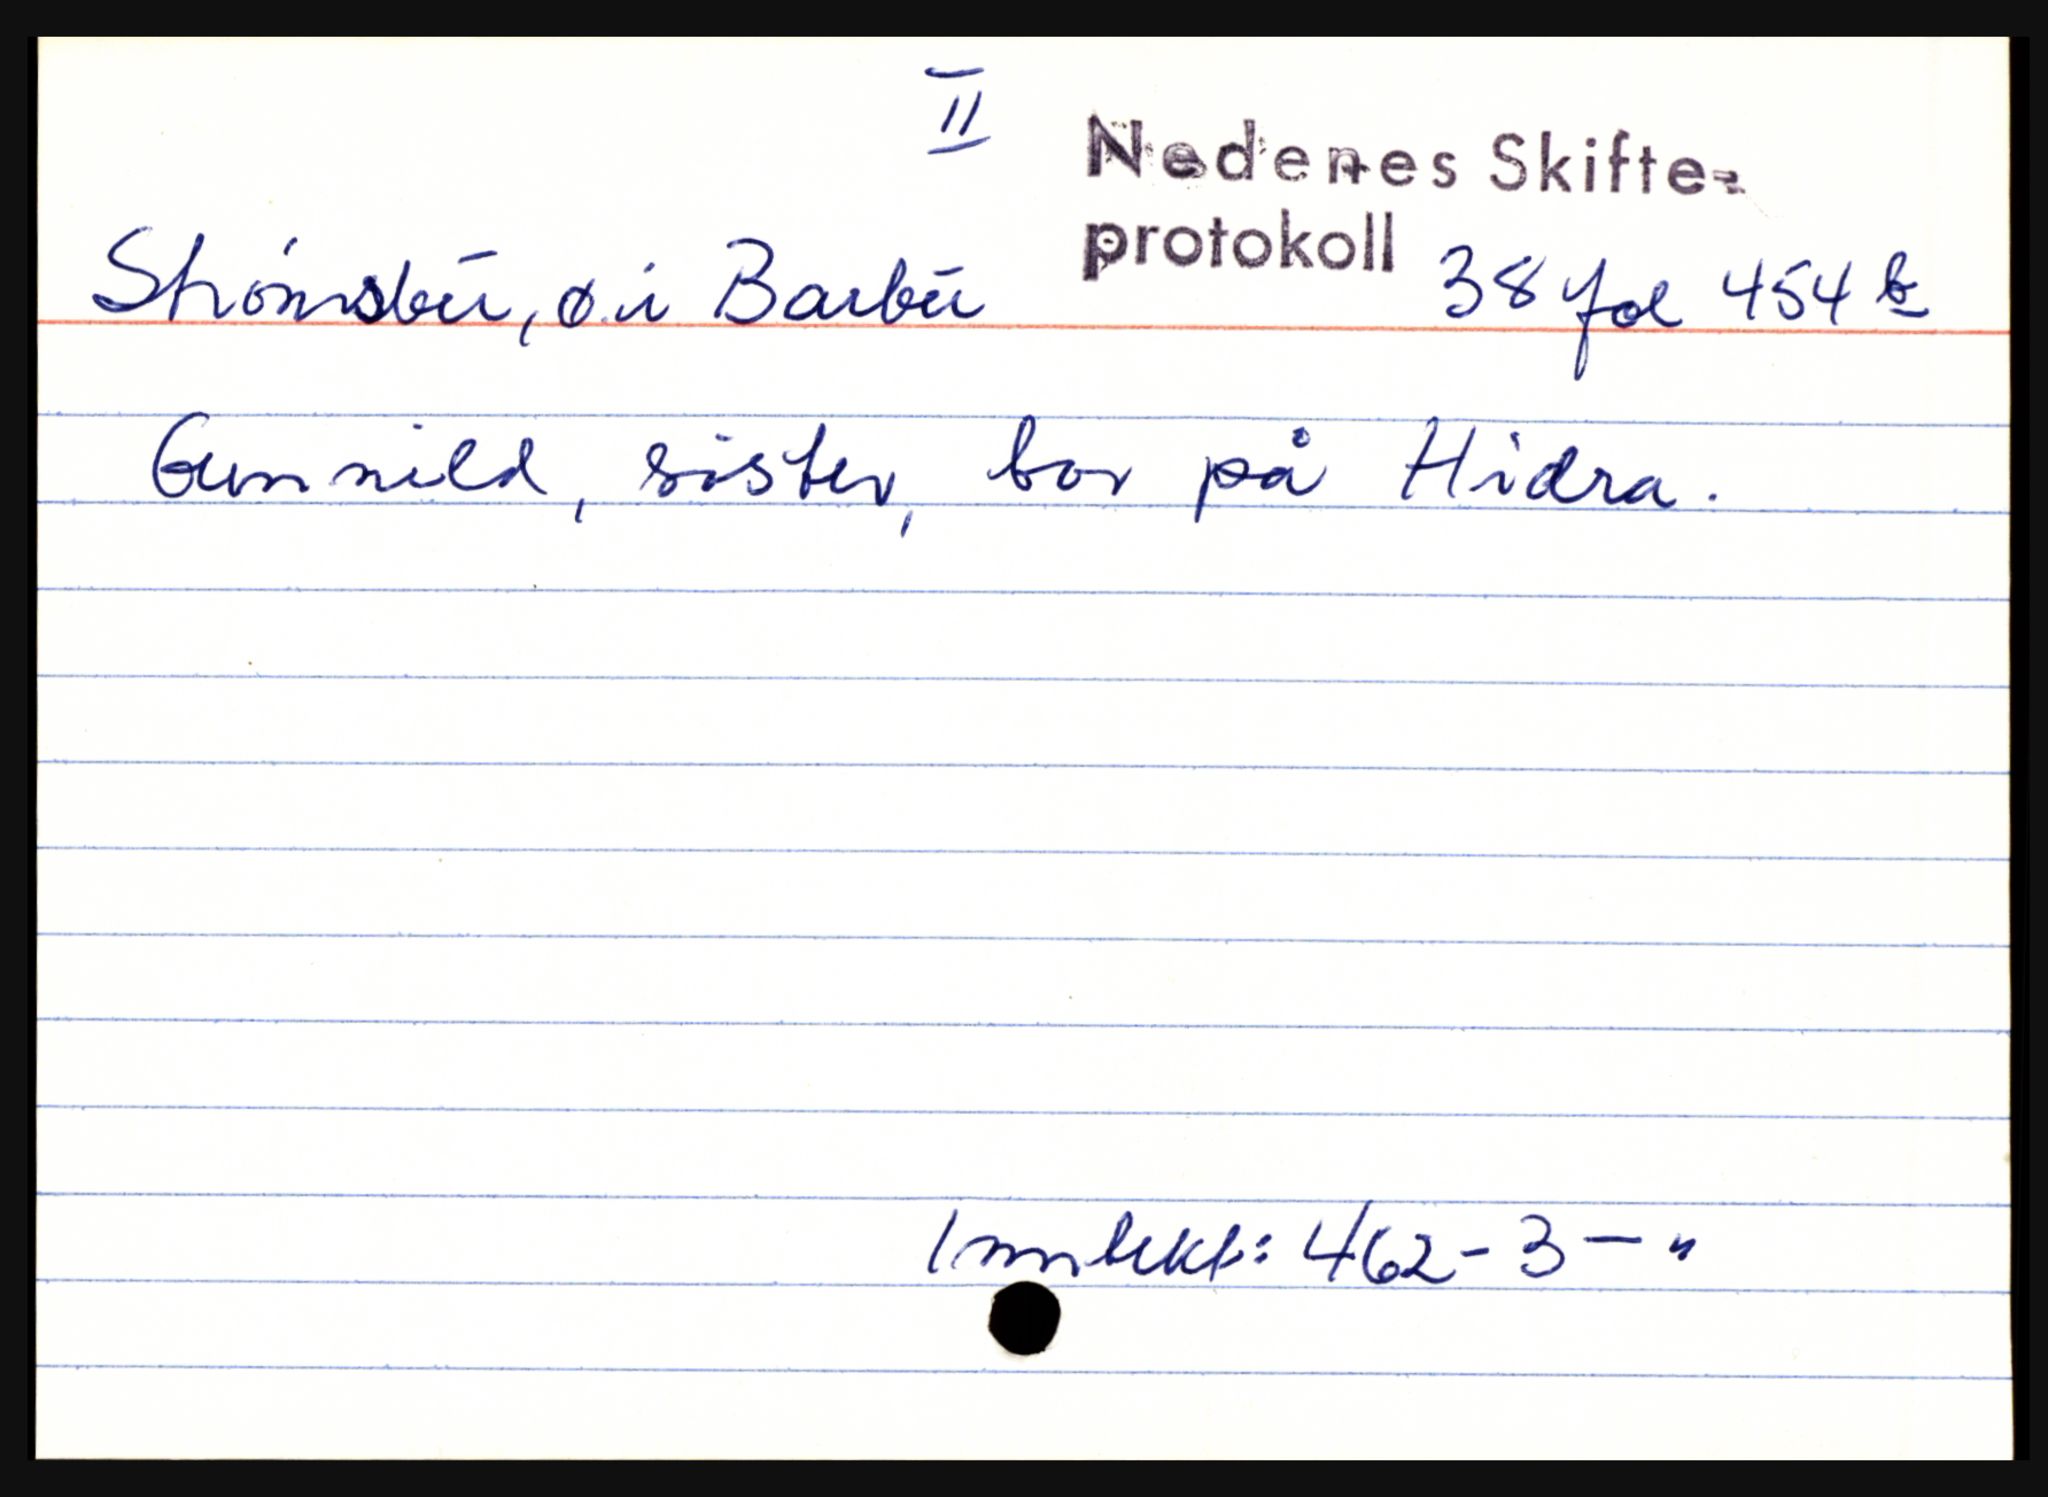 II
Nedenes Skifte-
protokoll
Strømsbu, ø. i Barbu 38 fol 454 b
Gunnild, søster, bor på Hidra.
Inntekt: 462 - 3 - "